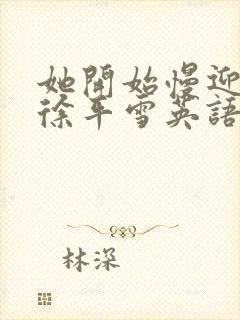 她開始慢迎
徐平雪英語
林深